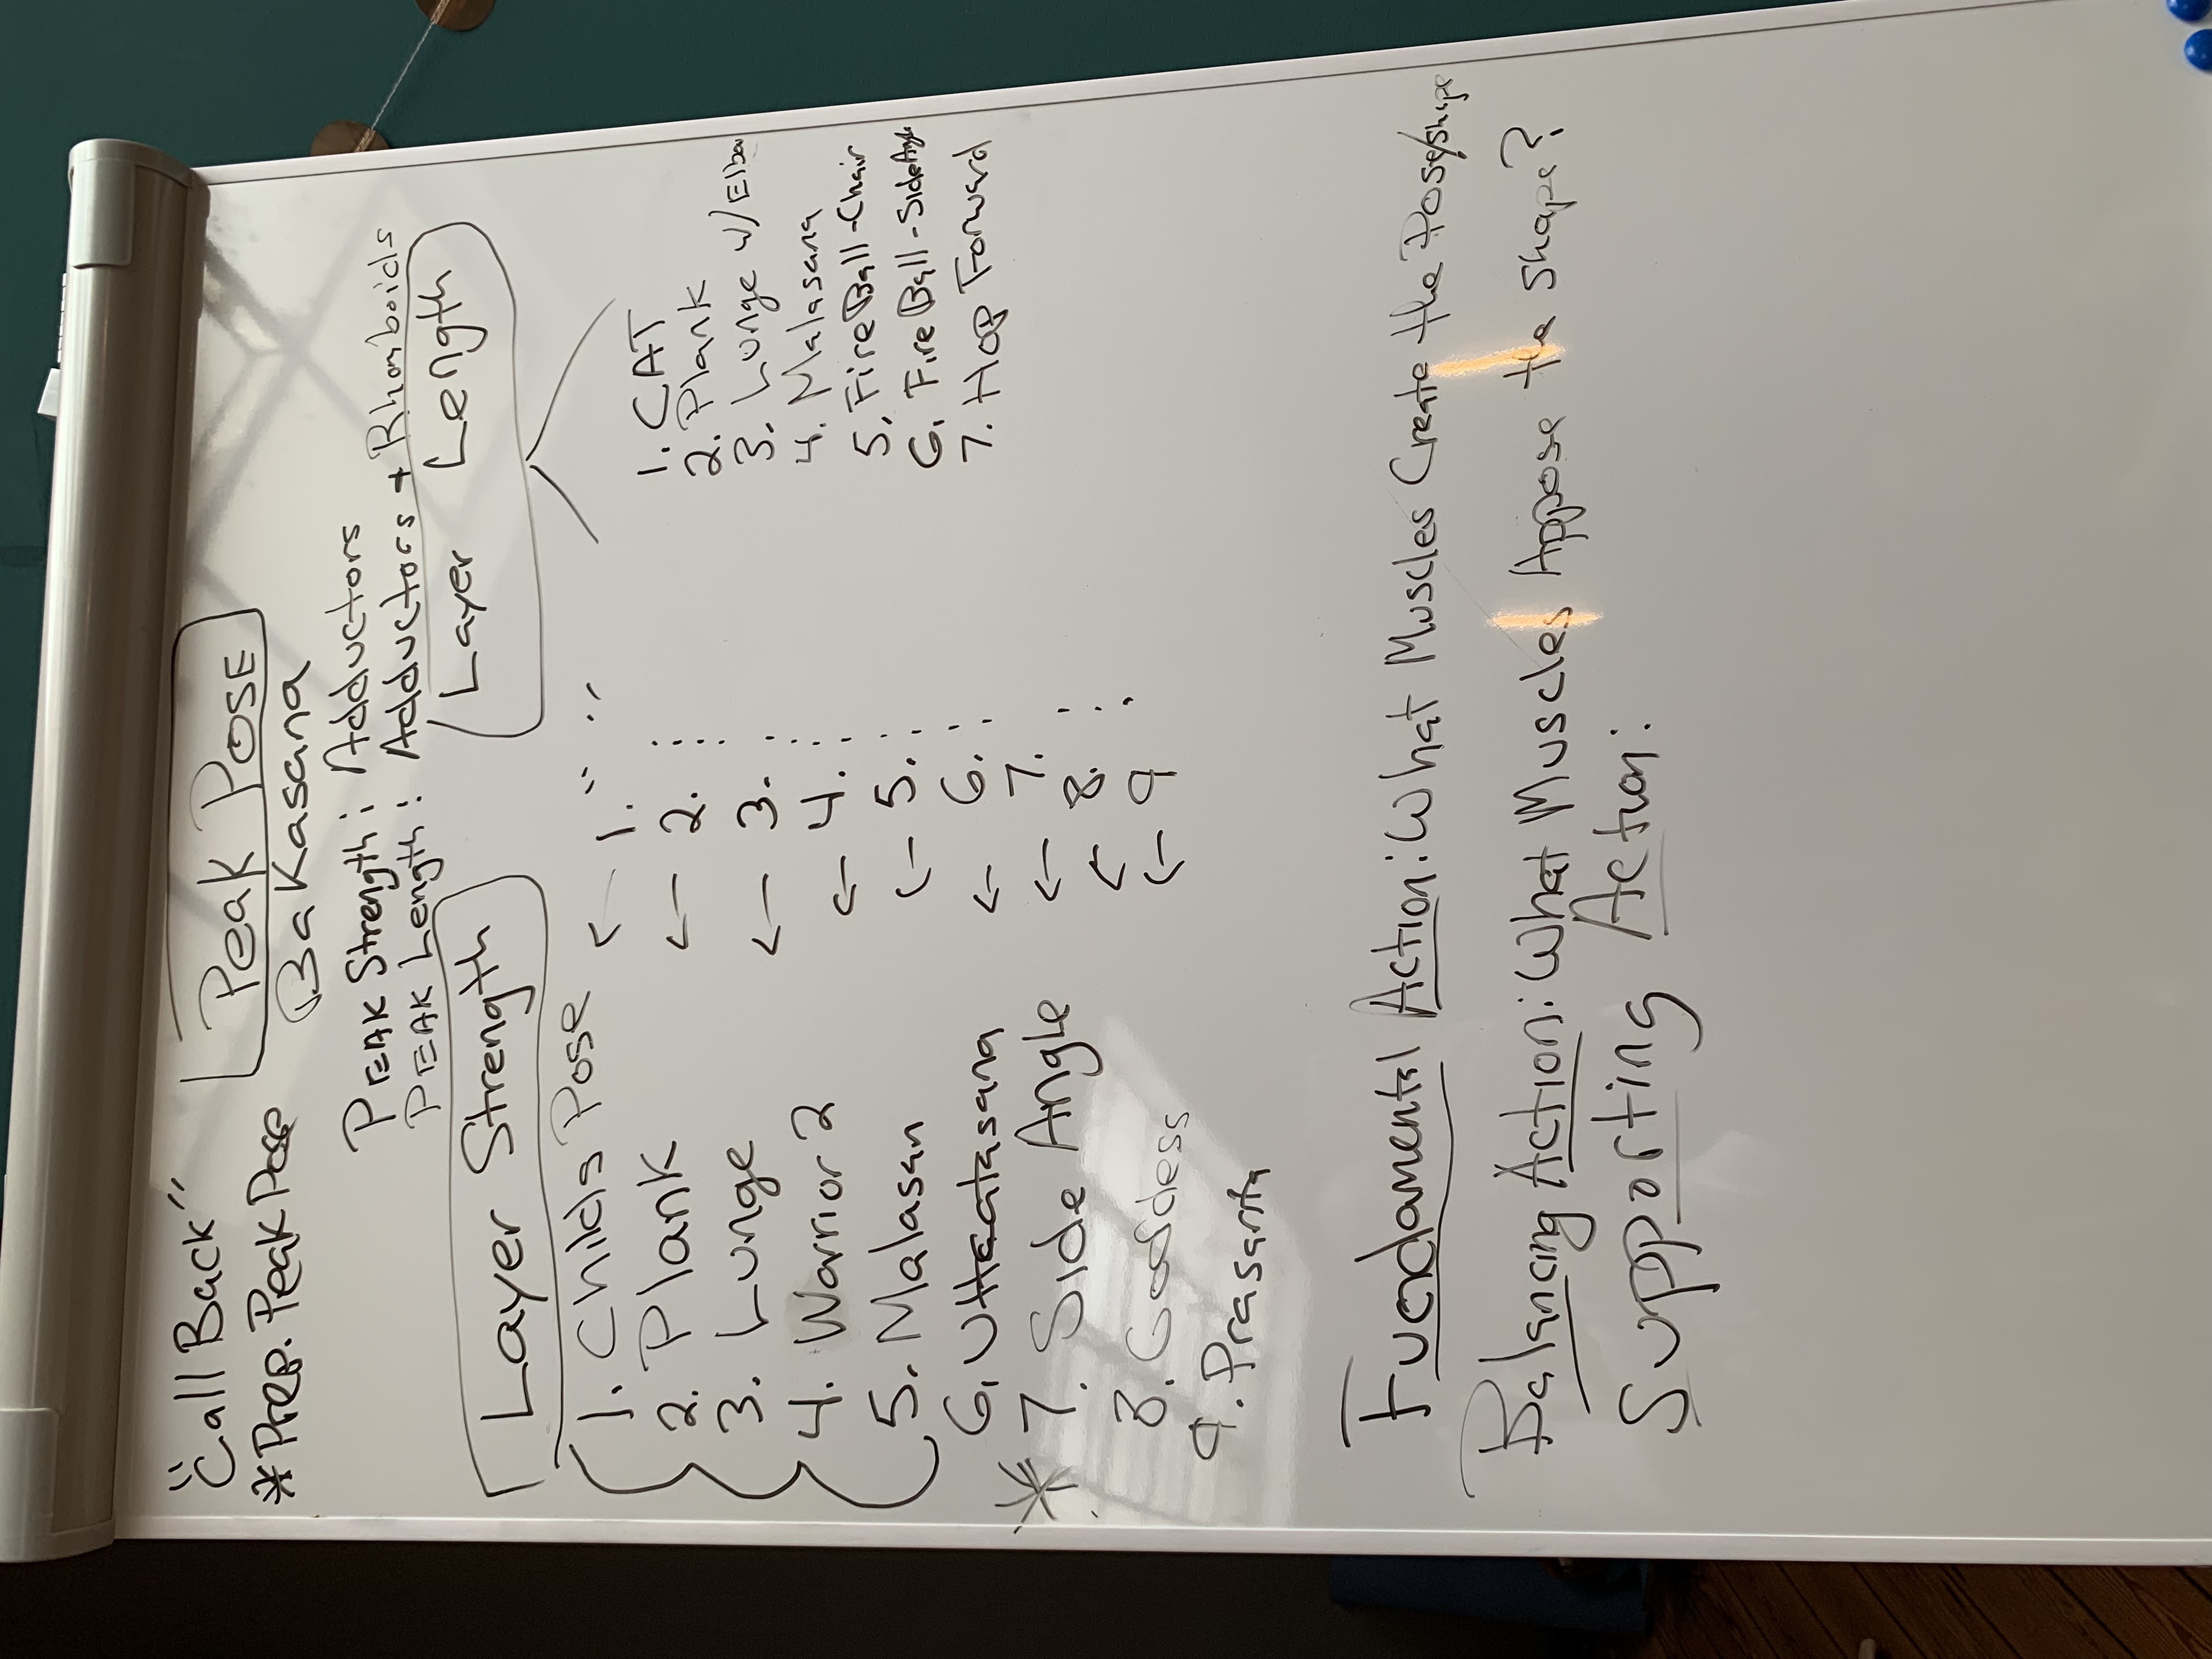 "Call Back"
Peak Pose
*Prep. Peak Pose
Bakasana
PEAK Strength: Adductors
PEAK Length: Adductors + Rhomboids
Layer Strength
Layer Length
1. Childs Pose ← 1. " "
2. Plank ← 2.
3. Lunge ← 3.
4. Warrior 2 ← 4.
5. Malasan ← 5.
6. Utkatasana ← 6.
* 7. Side Angle ← 7.
8. Goddess ← 8.
9. Prasarita ← 9
1. CAT
2. Plank
3. Lunge w/ Elbow
4. Malasana
5. FireBall-Chair
6. FireBall-Side Angle
7. Hop Forward
Fundamental Action: What Muscles Create the Pose/Shape
Balancing Action: What Muscles Appose the Shape?
Supporting Action: